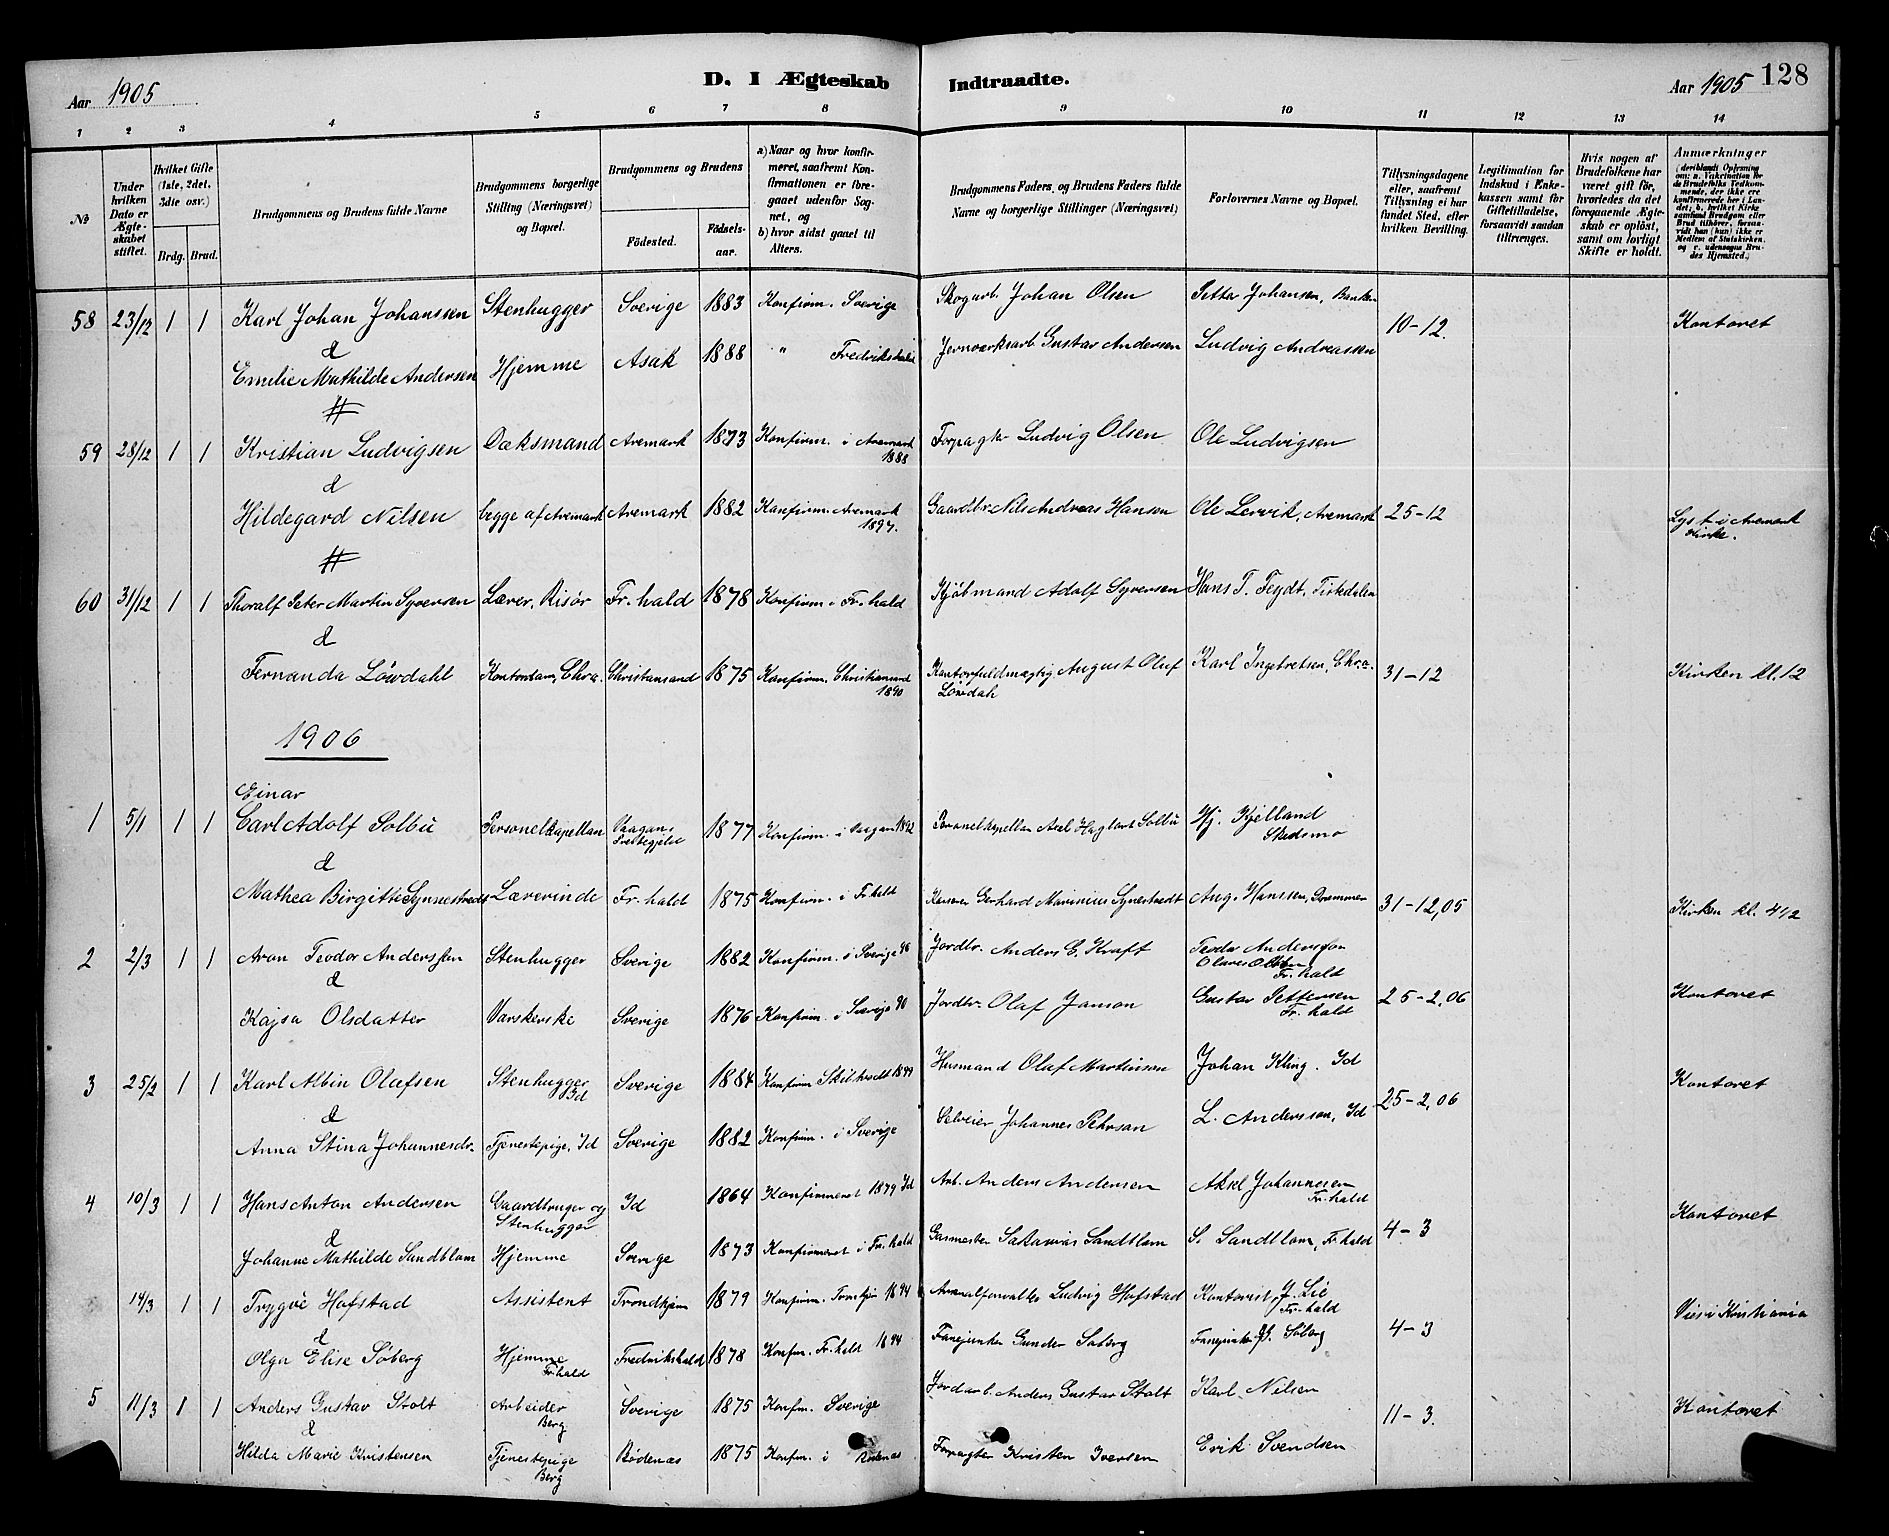 Aar 1905
D. I Ægteskab Indtraadte.
Aar 1905 128
1 2 3 4 5 6 7 8 9 10 11 12 13 14
№
Under hvilken Dato er Ægteskabet stiftet.
Hvilket Gifte (1ste, 2det, 3die osv.)
Brdg. Brud.
Brudgommens og Brudens fulde Navne
Brudgommens borgerlige Stilling (Næringsvei) og Bopæl.
Brudgommens og Brudens
Fødested. Fødselsaar.
a) Naar og hvor konfirmeret, saafremt Konfirmationen er foregaaet udenfor Sognet, og
b) hvor sidst gaaet til Alters.
Brudgommens Faders og Brudens Faders fulde Navne og borgerlige Stillinger (Næringsvei)
Forlovernes Navne og Bopæl.
Tillysningsdagene eller, saafremt Tillysning ei har fundet Sted, efter hvilken Bevilling.
Legitimation for Indskud i Enkekassen samt for Giftetilladelse, forsaavidt saadan tiltrænges.
Hvis nogen af Brudefolkene har været gift før, hvorledes da det foregaaende Ægteskab er opløst, samt om lovligt Skifte er holdt.
Anmærkninger
58 23/12 1 1 Karl Johan Johanssen Stenhugger Sverige 1883 Konfirm. Sverige Skogarb. Johan Olsen Petter Johansen, Banken 10-12. Kontoret
&
Emilie Mathilde Andersen Hjemme Asak 1888 " Fredrikshald Jernverksarb Gustav Andersen Ludvig Andreassen
59 28/12 1 1 Kristian Ludvigsen Dæksmand Aremark 1873 Konfirm. i Aremark 1888 Forpagter Ludvig Olsen Ole Ludvigsen
&
Hildegard Nilsen begge af Aremark Aremark 1882 Konfirm. Aremark 1897. Gaardbr. Nils Andreas Hansen Ole Lervik, Aremark 25-12 Lyst i Aremark Kirke.
60 31/12 1 1 Thoralf Peter Martin Syversen Lærer, Risør Fr. hald 1878 Konfirm i Fr. hald Kjøbmand Adolf Syversen Hans T. Feydt,
&
Fernanda Löwdahl Kontordam, Chra. Christiansand 1875 Konfirm. Christiansand 1890 Kontorfuldmægtig August Oluf Löwdah Karl Ingebretsen, Chra. 31-12 Kirken kl. 12
1906
Einar
1 5/1 1 1 Carl Adolf Solbu Personelkapellan Vaagan Prestegjeld 1877 Konfirm. i Vaagan 1892 Personelkapellan Axel Solbu Hj. Kjelland Skedsmo
&
Mathea Birgitte Synnestvedt Lærerinde Fr. hald 1875 Konfirm. i Fr hald Gerhard Marinius Synestvedt Aug. Hanssen, Drammen 31-12,05 Kirken kl. 4 1/2
2 2/3 1 1 Aron Teodor Anderssen Stenhugger Sverige 1882 Konfirm. i Sverige Jordbr. Anders E. Kraft Teodor Andersson Fr. hald
&
Kajsa Olsdatter Varskerske Sverige 1876 Konfirm. i Sverige 90 Jordbr. Olaf Janson Gustav Pettersen Fr. hald 25-2,06 Kontoret
3 25/2 1 1 Karl Albin Olafsen Stenhugger Id Sverige 1884 Konfirm 1899 Husmand Olaf Martinsen Johan Kling. Id Kontoret
&
Anna Stina Johannesdr. Tjenestepige, Id Sverige 1882 Konfirm. i Sverige Selveier Johannes Pehrsan L. Andersson, Id 25-2,06
4 10/3 1 1 Hans Anton Andersen Gaardbruger og Stenhugger Id 1864 Konfirmeret 1879 Id Arb. Anders Andersen Aksel Johannesen Fr. hald
&
Johanne Mathilde Sandblom Hjemme Sverige 1873 Konfirmeret i Fr. hald Sandblom S. Sandblom, Fr. hald 4-3 Kontoret
14/3 1 1 Trygve Hofstad Assistent Trondhjem 1879 Konfirm. Tromhjm 1894 Arsenalforvalter Ludvig Hofstad Kontorist J. Lie Fr. hald Viet i Kristiania
&
Olga Elise Søberg Hjemme Fr. hald Fredrikshald 1878 Konfm. Fr. hald 1894 Fanejunker Gunder Søberg Fanejunker G. Søberg 4-3
5 11/3 1 1 Anders Gustav Stolt Arbeider Berg Sverige 1875 Konfm. Sverige Jordarb. Anders Gustav Stolt Karl Nilsen 11-3. Kontoret
&
Hilda Marie Kristensen Tjenestepige Berg Rødenæs 1875 Konfm. i Rødenæs Forpagter Kristen Iversen Erik Svendsen